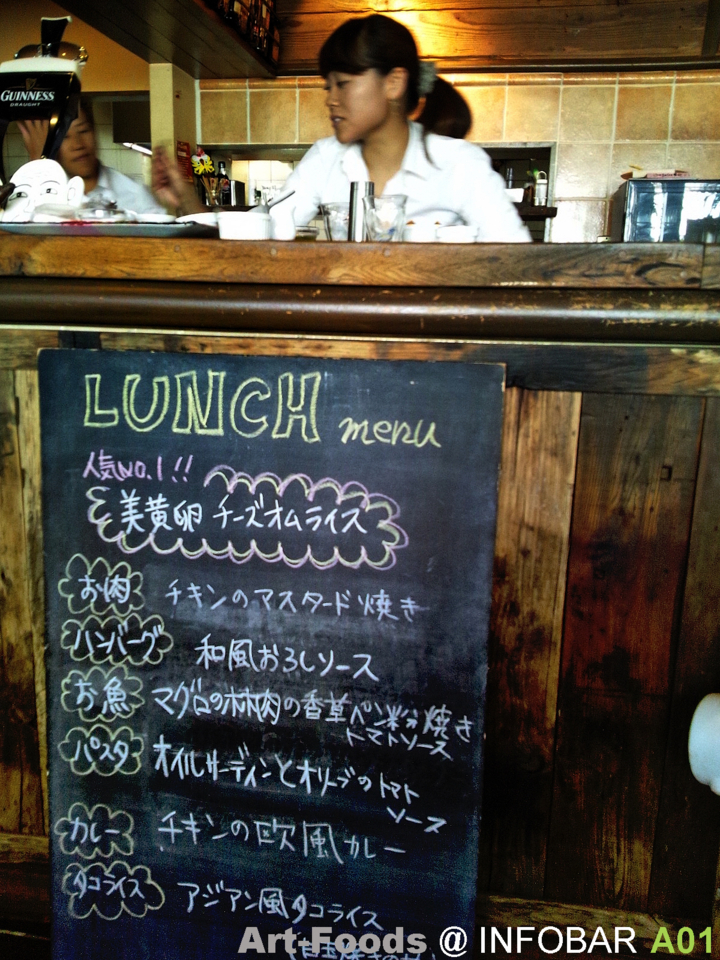 GUINNESS
DRAUGHT
LUNCH menu
人気NO.1!!
美黄卵 チーズオムライス
お肉 チキンのマスタード焼き
ハンバーグ 和風おろしソース
お魚 マグロのホホ肉の香草パン粉焼き
トマトソース
パスタ オイルサーディンとオリーブのトマト
ソース
カレー チキンの欧風カレー
タコライス アジアン風タコライス
Art+Foods @ INFOBAR A01